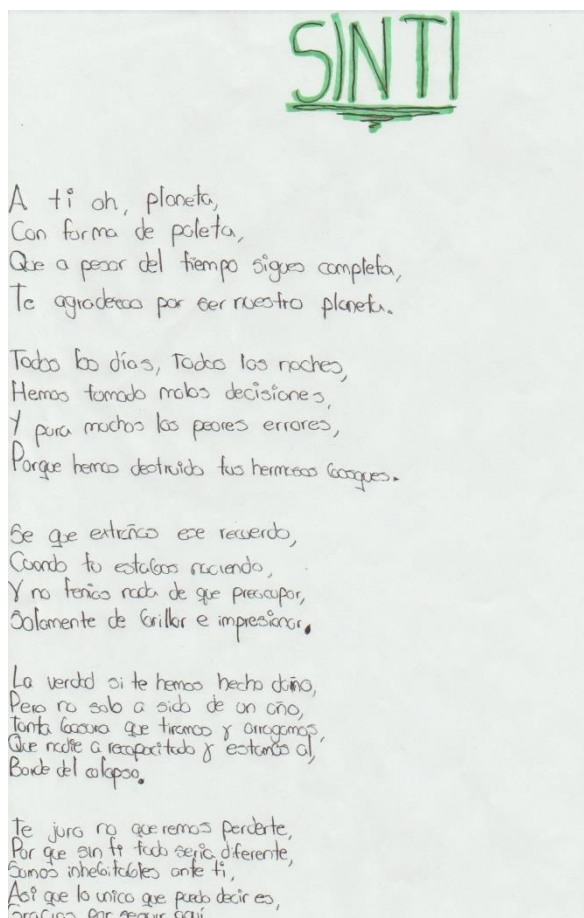 SIN TI
A ti oh, planeta,
Con forma de paleta,
Que a pesar del tiempo sigues completa,
Te agradezco por ser nuestro planeta.
Todos los días, Todas las noches,
Hemos tomado malas decisiones,
Y para muchos los peores errores,
Porque hemos destruido tus hermosos bosques.
Se que extrañas ese recuerdo,
Cuando tu estabas naciendo,
Y no tenias nada de que preocupar,
Solamente de brillar e impresionar.
La verdad si te hemos hecho daño,
Pero no solo a sido de un año,
Tanta basura que tiramos y arrogamos,
Que nadie a recapacitado y estamos al,
Borde del colapso.
Te juro no queremos perderte,
Por que sin ti todo seria diferente,
Somos inhebitables ante ti,
Asi que lo unico que puedo decir es,
Gracias por seguir aquí